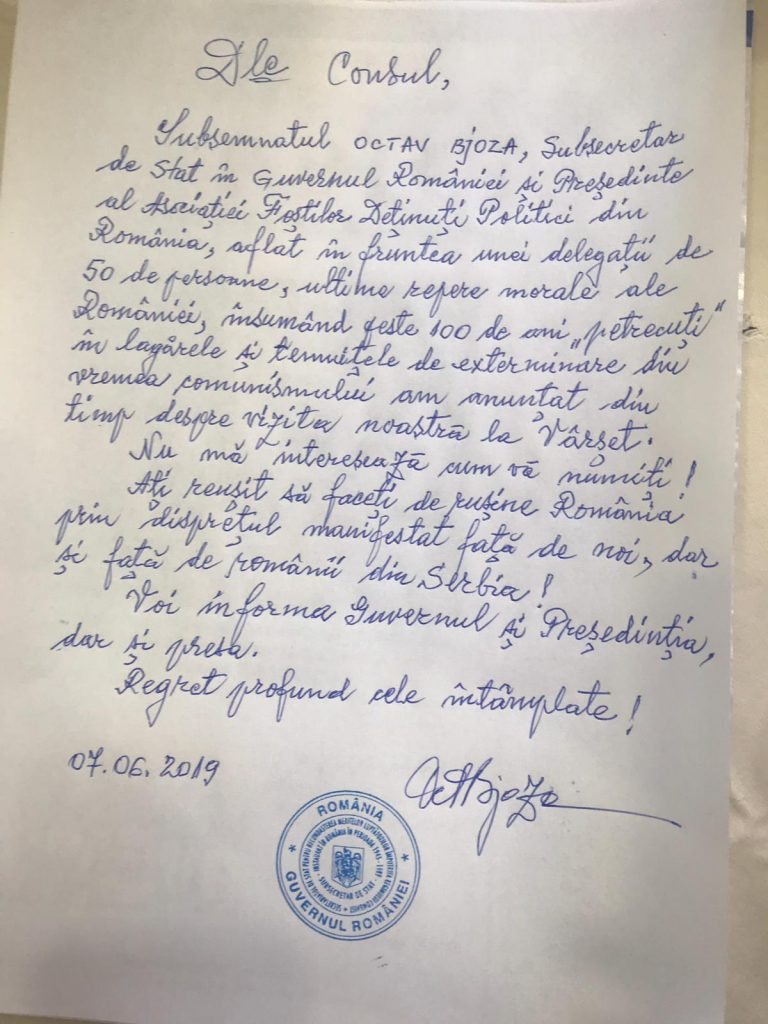 Dle Consul,
Subsemnatul OCTAV BJOZA, Subsecretar
de Stat în Guvernul României și Președinte
al Asociației Foștilor Deținuți Politici din
România, aflat în fruntea unei delegații de
50 de persoane, ultime repere morale ale
României, însumând peste 100 de ani „petrecuți”
în lagărele și temnițele de exterminare din
vremea comunismului am anunțat din
timp despre vizita noastră la Vârșeț.
Nu mă interesează cum vă numiți!
Ați reușit să faceți de rușine România
prin disprețul manifestat față de noi, dar
și față de românii din Serbia!
Voi informa Guvernul și Președinția,
dar și presa.
Regret profund cele întâmplate!
07.06.2019
OctBjoza
ROMÂNIA
INSTAURAT ÎN ROMÂNIA ÎN PERIOADA 1945 - 1989
SUBSECRETAR DE STAT
GUVERNUL ROMÂNIEI